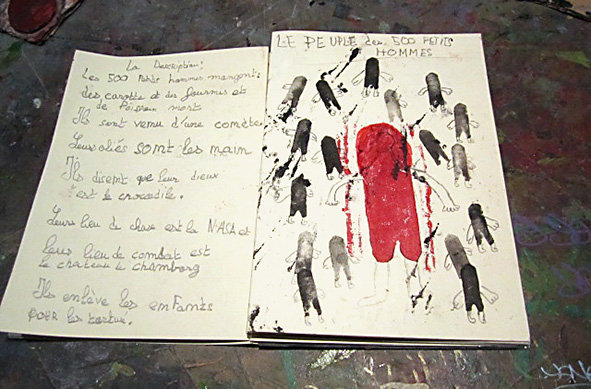 La Description:
Les 500 Petits hommes mangont
des carotte et des fourmis et
de Poisson morts
Ils sont venu d'une comète
Leurs aliés sont les main
Ils disent que leur dieux
est le crocodile.
Leurs lieu de chase est la NASA et
leurs lieu de combat est
le chateau de chamborg
Ils enlève les enfants
pour les torture.
LE PEUPLE des 500 PETITS
HOMMES